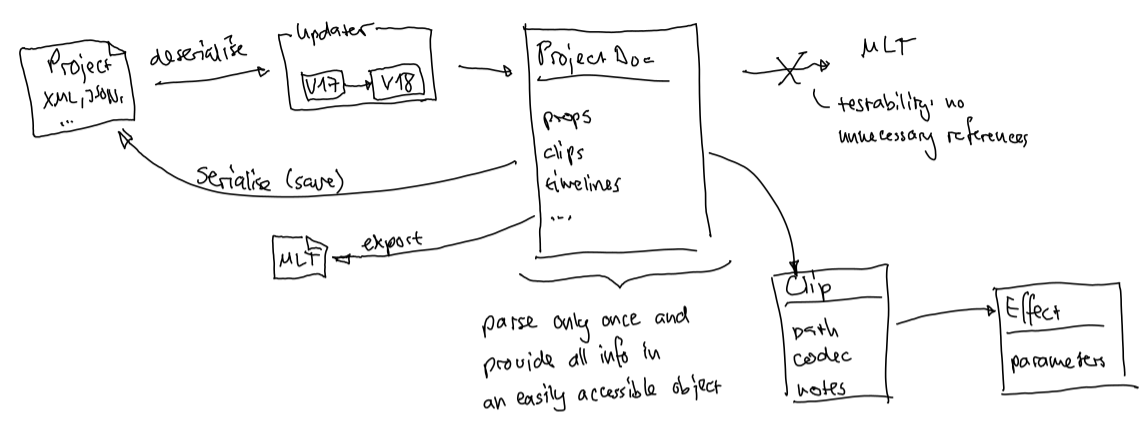 Project
XML, JSON,
...
deserialise
Updater
V17
V18
Project Doc
props
clips
timelines
...
MLT
testability: no
unnecessary references
serialise (save)
export
MLT
parse only once and
provide all info in
an easily accessible object
Clip
path
codec
notes
Effect
parameters